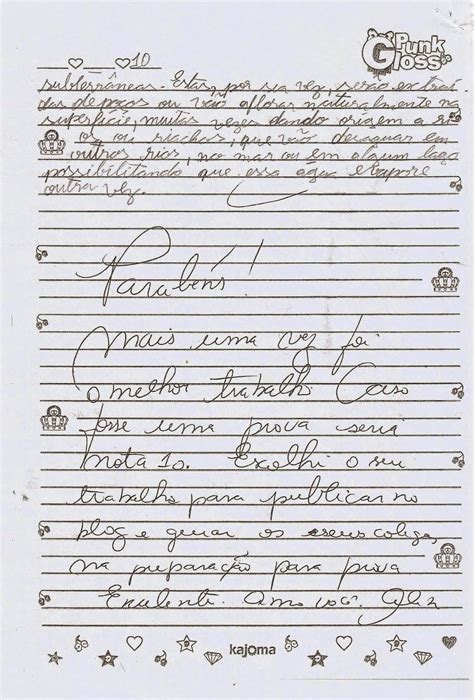 Punk
Gloss
10
subterrâneas. Estas, por sua vez, serão extraí
das de poços ou vão aflorar naturalmente na
superfície, muitas vezes dando origem a ri
os ou riachos, que vão desaguar em
outros rios, no mar ou em algum lago
possibilitando que essa agua evapore
outra vez.
Parabéns!!
Mais uma vez foi
o melhor trabalho. Caso
fosse uma prova seria
nota 10. Escolhi o seu
trabalho para publicar no
blog e os seus colegas,
na preparação para prova
Excelente. Amo você.
kajoma